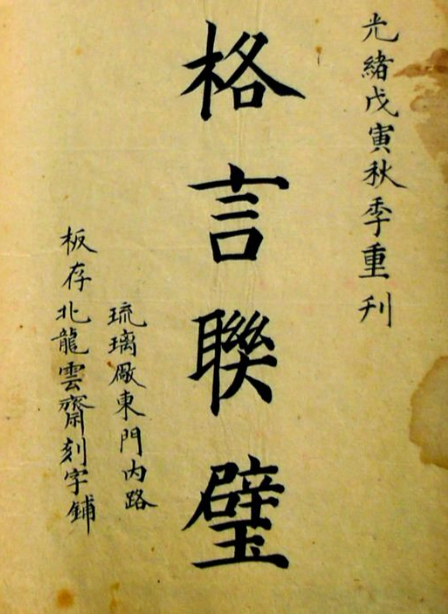 光緒戊寅秋季重刊
格言聯璧
板存
琉璃厰東門内路
北龍雲齋刻字鋪